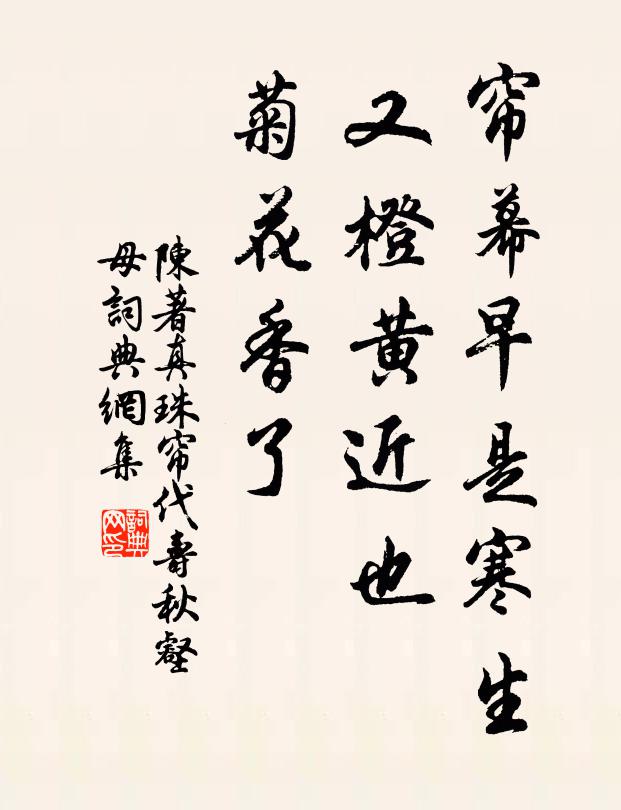 帘幕早是寒生
又橙黄近也
菊花香了
陳著真珠帘代壽秋壑
母詞典網集
詞典
网印